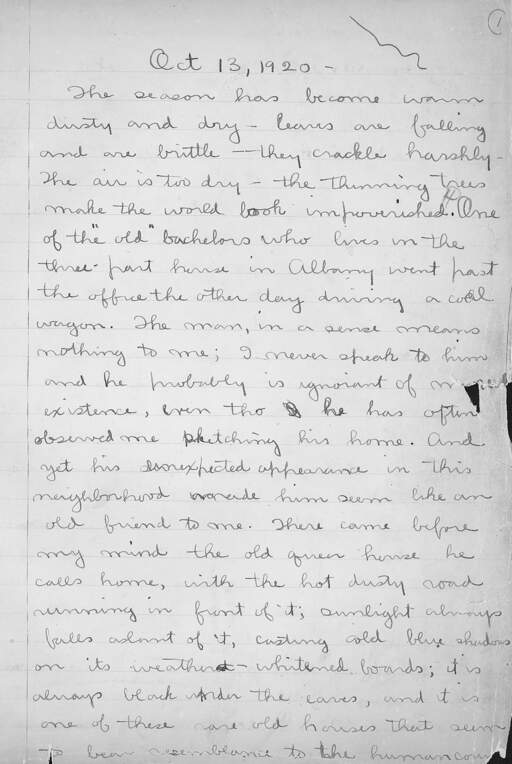 1
Oct 13, 1920 -
The season has become warm
dusty and dry - leaves are falling
and are brittle - they crackle harshly -
The air is too dry - the thinning trees
make the world look impoverished. One
of the "old" bachelors who lives in the
three-part house in Albany went past
the office the other day driving a coal
wagon. The man, in a sense means
nothing to me; I never speak to him
and he probably is ignorant of my
existence, even tho he has often
observed me sketching his home. And
yet his unexpected appearance in this
neighborhood made him seem like an
old friend to me. There came before
my mind the old queer house he
calls home, with the hot dusty road
running in front of it; sunlight always
falls aslant of it, casting cold blue shadows
on its weather-whitened boards; it is
always black under the eaves, and it is
one of these rare old houses that seem
to bear resemblance to the human coun